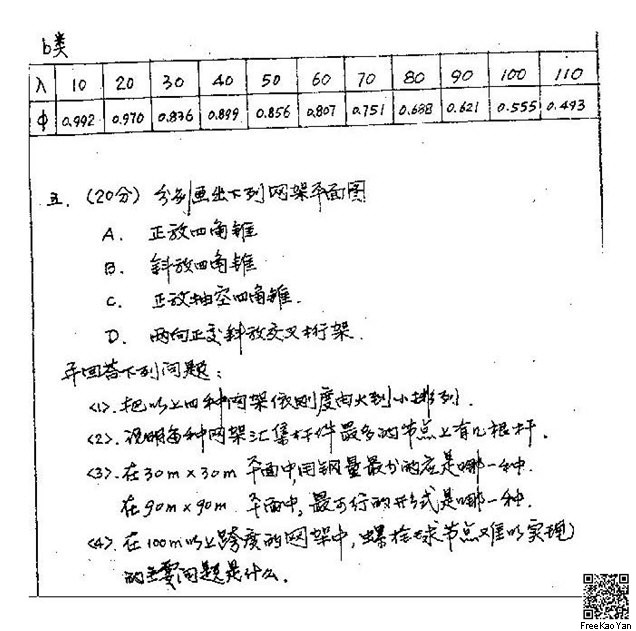 b类
λ 10 20 30 40 50 60 70 80 90 100 110
φ 0.992 0.970 0.936 0.899 0.856 0.807 0.751 0.688 0.621 0.555 0.493
五.(20分)分别画出下列网架平面图
A. 正放四角锥
B. 斜放四角锥
C. 正放抽空四角锥.
D. 两向正交斜放交叉桁架.
并回答下列问题:
<1>. 把以上四种网架依刚度由大到小排列.
<2>. 说明每种网架汇集杆件最多的节点上有几根杆.
<3>. 在30m×30m 平面中,用钢量最少的应是哪一种.
在90m×90m 平面中,最可行的形式是哪一种.
<4>. 在100m以上跨度的网架中,螺栓球节点难以实现
的主要问题是什么.
FreeKaoYan